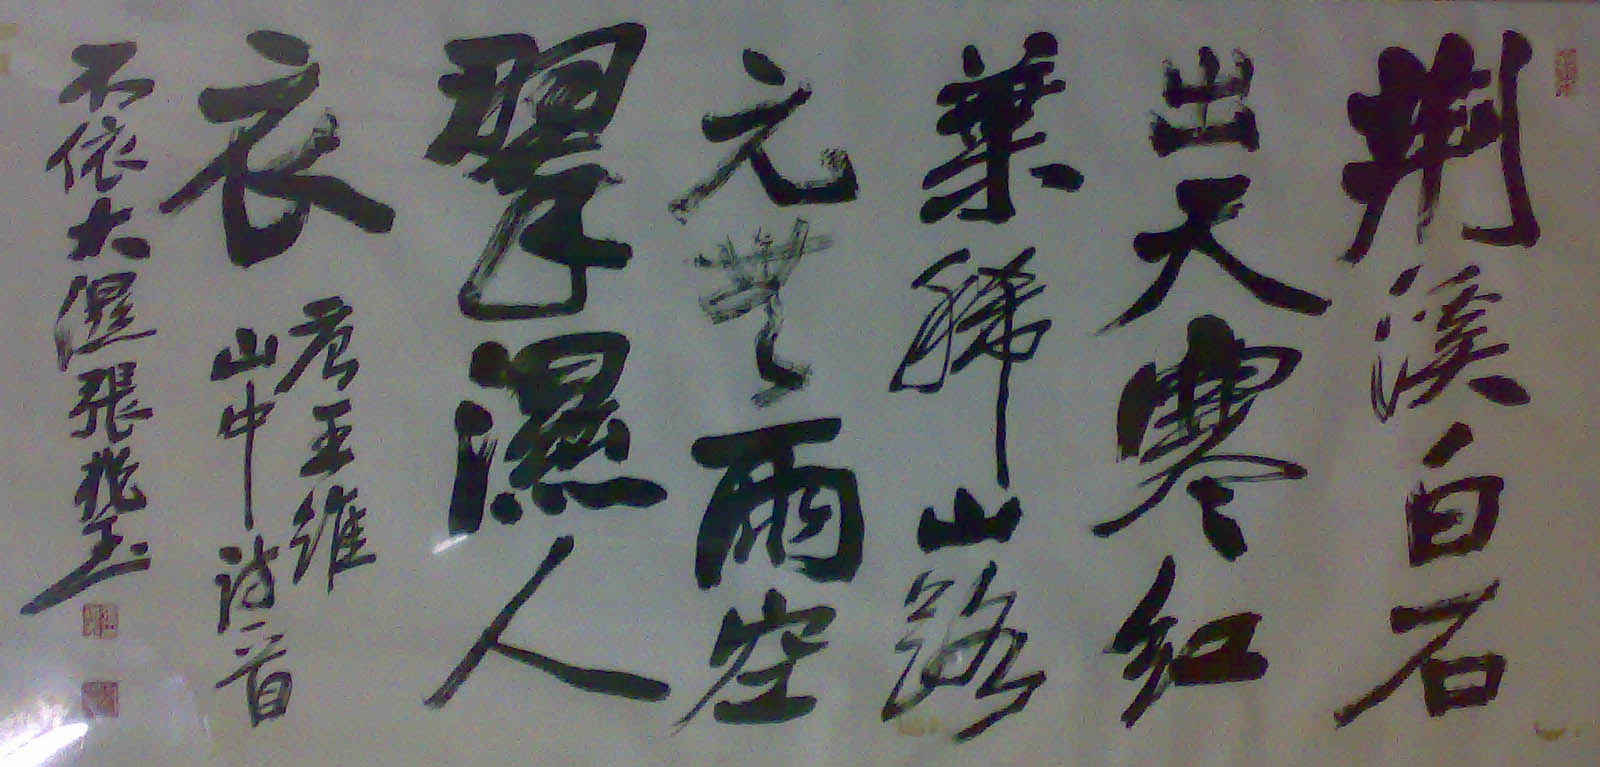 荆溪白石
出天寒红
葉稀山路
元無雨空
翠濕人
衣
唐王維
山中詩一首
不依大濕張